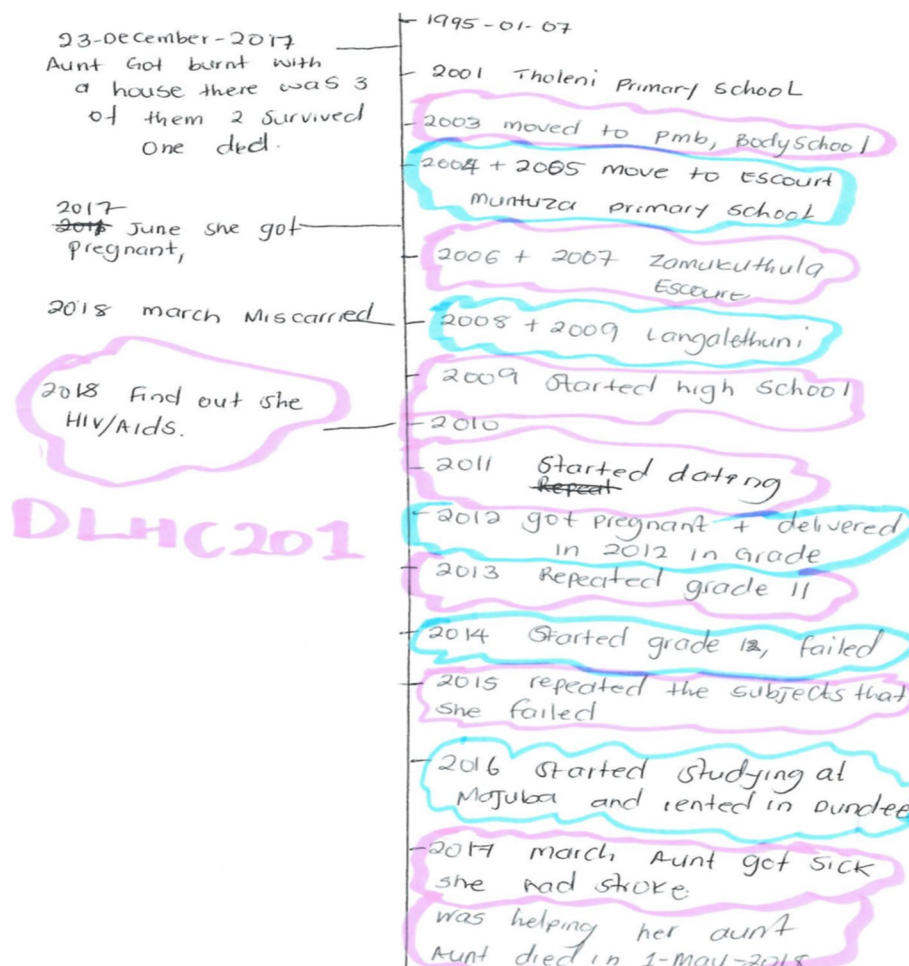 23-December-2017
Aunt Got burnt with
a house there was 3
of them 2 survived
one died.
2017
2018 June she got
pregnant,
2018 march Miscarried
2018 Find out she
HIV/AIDS.
DLHC201
1995-01-07
2001 Tholeni Primary School
2003 moved to Pmb, BodySchool
2004 + 2005 move to Escourt
Muntuza primary school
2006 + 2007 Zamukuthula
Escourt
2008 + 2009 Langalethuni
2009 Started high School
2010
2011 Started dating
Repeat
2012 got pregnant + delivered
in 2012 in Grade
2013 Repeated grade 11
2014 Started grade 12, failed
2015 repeated the subjects that
she failed
2016 Started studying at
Mojuba and rented in Dundee
2017 march Aunt got sick
she had stroke.
was helping her aunt
Aunt died in 1-May-2018